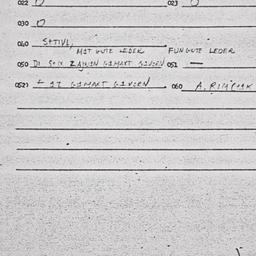 022 0 023 0
030 0
040 STIVL,
MIT GUTE LEDER FUN GUTE LEDER
050 DI SOLN ZAJNEN GEMAKT GEVOREN 051 —
052) + IZ GEMAKT GEVOREN 060 A.